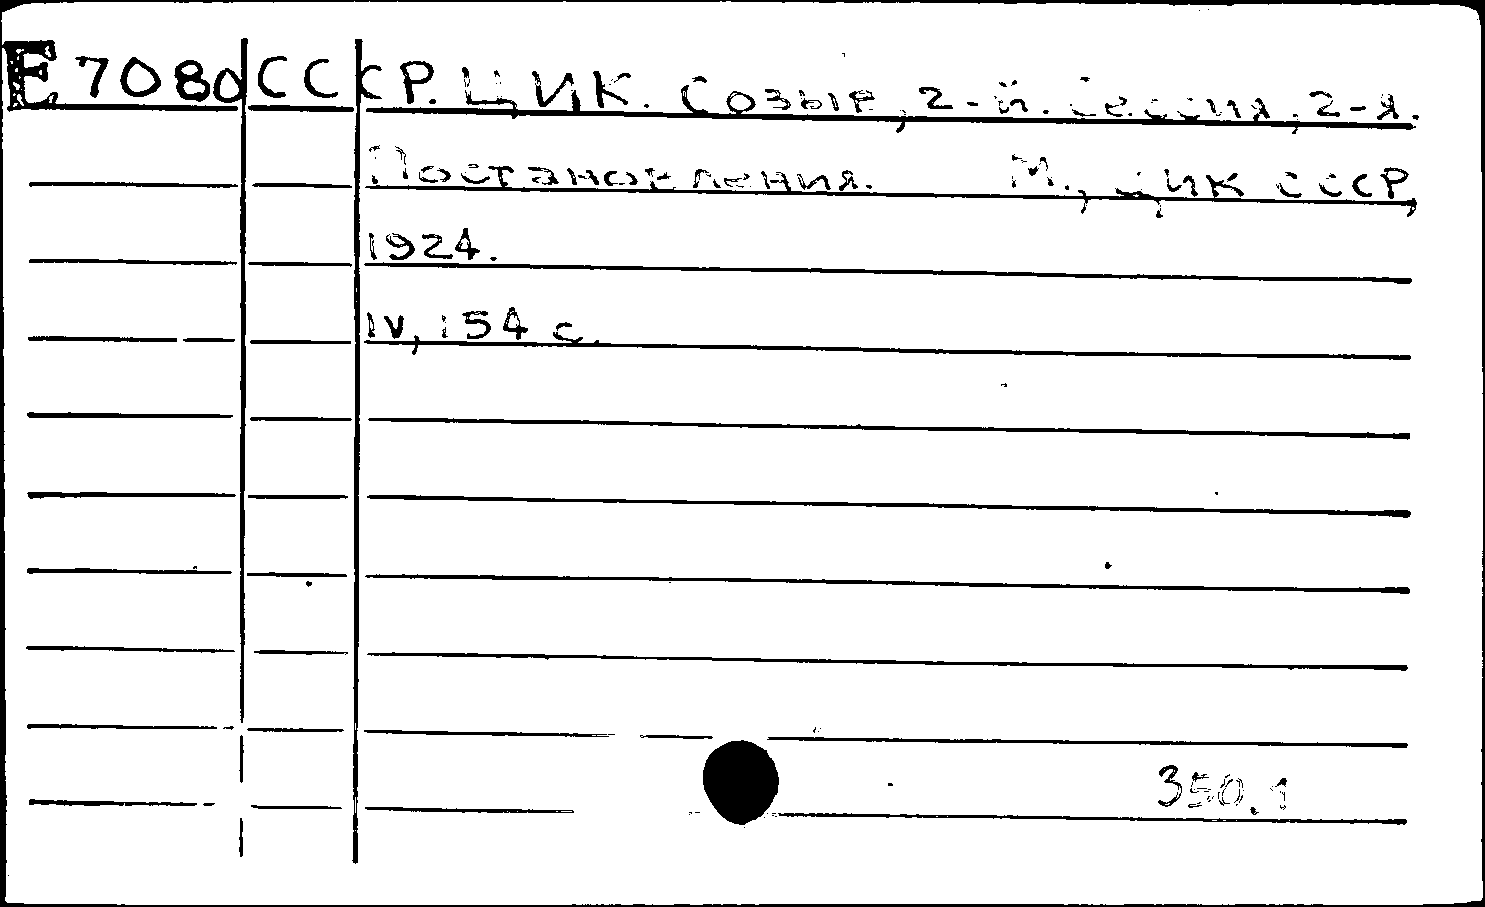 E7080 СССР. ЦИК. Созыв, 2-й. Сессия, 2-я.
Постановления. М., ЦИК СССР,
1924.
IV, 154 с.
350.1